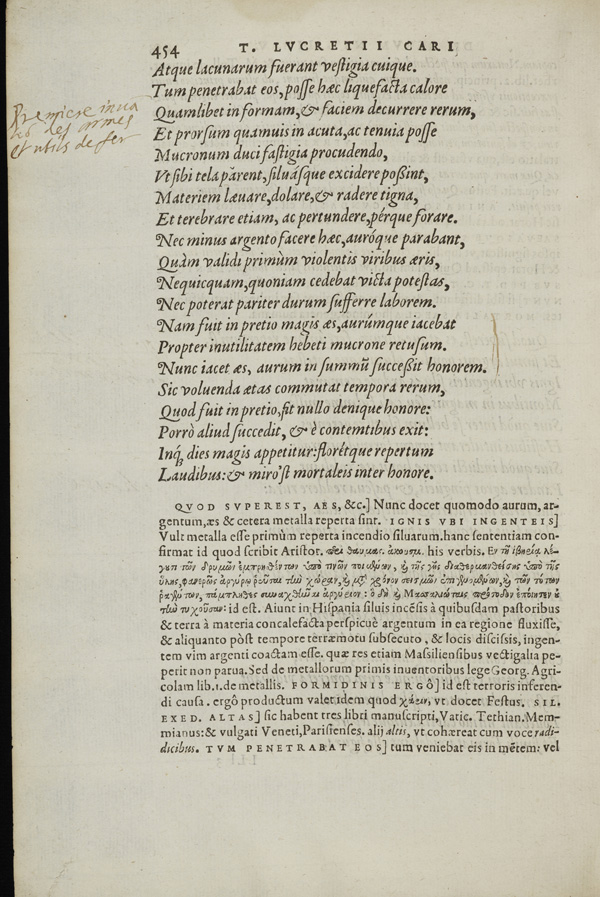 454 T. LVCRETII CARI
Atque lacunarum fuerant vestigia cuique.
Tum penetrabat eos, posse hæc liquefacta calore
Quamlibet in formam, & faciem decurrere rerum,
Et prorsum quamuis in acuta, ac tenuia posse
Mucronum duci fastigia procudendo,
Vt sibi tela párent, siluásque excidere possint,
Materiem læuare, dolare, & radere tigna,
Et terebrare etiam, ac pertundere, pérque forare.
Nec minus argento facere hæc, auróque parabant,
Quàm validi primùm violentis viribus æris,
Nequicquam, quoniam cedebat victa potestas,
Nec poterat pariter durum sufferre laborem.
Nam fuit in pretio magis æs, aurúmque iacebat
Propter inutilitatem hebeti mucrone retusum.
Nunc iacet æs, aurum in summũ successit honorem.
Sic voluenda ætas commutat tempora rerum,
Quod fuit in pretio, fit nullo denique honore:
Porrò aliud succedit, & è contemtibus exit:
Inq́; dies magis appetitur: florétque repertum
Laudibus: & miro'st mortaleis inter honore.
Premiere inua
des armes
et utils de fer
QVOD SVPEREST, AES, &c.] Nunc docet quomodo aurum, ar-
gentum, æs & cetera metalla reperta sint. IGNIS VBI INGENTEIS]
Vult metalla esse primùm reperta incendio siluarum. hanc sententiam con-
firmat id quod scribit Aristot. περὶ θαυμας. ἀκουσμ. his verbis. Ἐν τῇ ἰβηρίᾳ λέ-
γουσι τῶν δρυμῶν ἐμπρησθέντων ὑπό τινων ποιμένων, καὶ τῆς γῆς διαθερμανθείσης ὑπὸ τῆς
ὕλης, φανερῶς ἀργύρῳ ῥεῦσαι τὴν χώραν, καὶ μετὰ χρόνον σεισμῶν ἐπιγενομένων, καὶ τῶν τόπων
ῥαγέντων, πάμπληθες συναχθῆναι ἀργύριον: ὃ δὴ καὶ Μασσαλιώταις πρόσοδον ἐποίησεν οὐ
τὴν τυχοῦσαν: id est. Aiunt in Hispania siluis incẽsis à quibusdam pastoribus
& terra à materia concalefacta perspicuè argentum in ea regione fluxisse,
& aliquanto pòst tempore terræmotu subsecuto, & locis discissis, ingen-
tem vim argenti coactam esse. quæ res etiam Massiliensibus vectigalia pe-
perit non parua. Sed de metallorum primis inuentoribus lege Georg. Agri-
colam lib. 1. de metallis. FORMIDINIS ERGÔ] id est terroris inferen-
di causa. ergô productum valet idem quod χάριν, vt docet Festus. SIL.
EXED. ALTAS] sic habent tres libri manuscripti, Vatic. Tethian. Mem-
mianus: & vulgati Veneti, Parisienses. alij altis, vt cohæreat cum voce radi-
dicibus. TVM PENETRABAT EOS] tum veniebat eis in mẽtem: vel